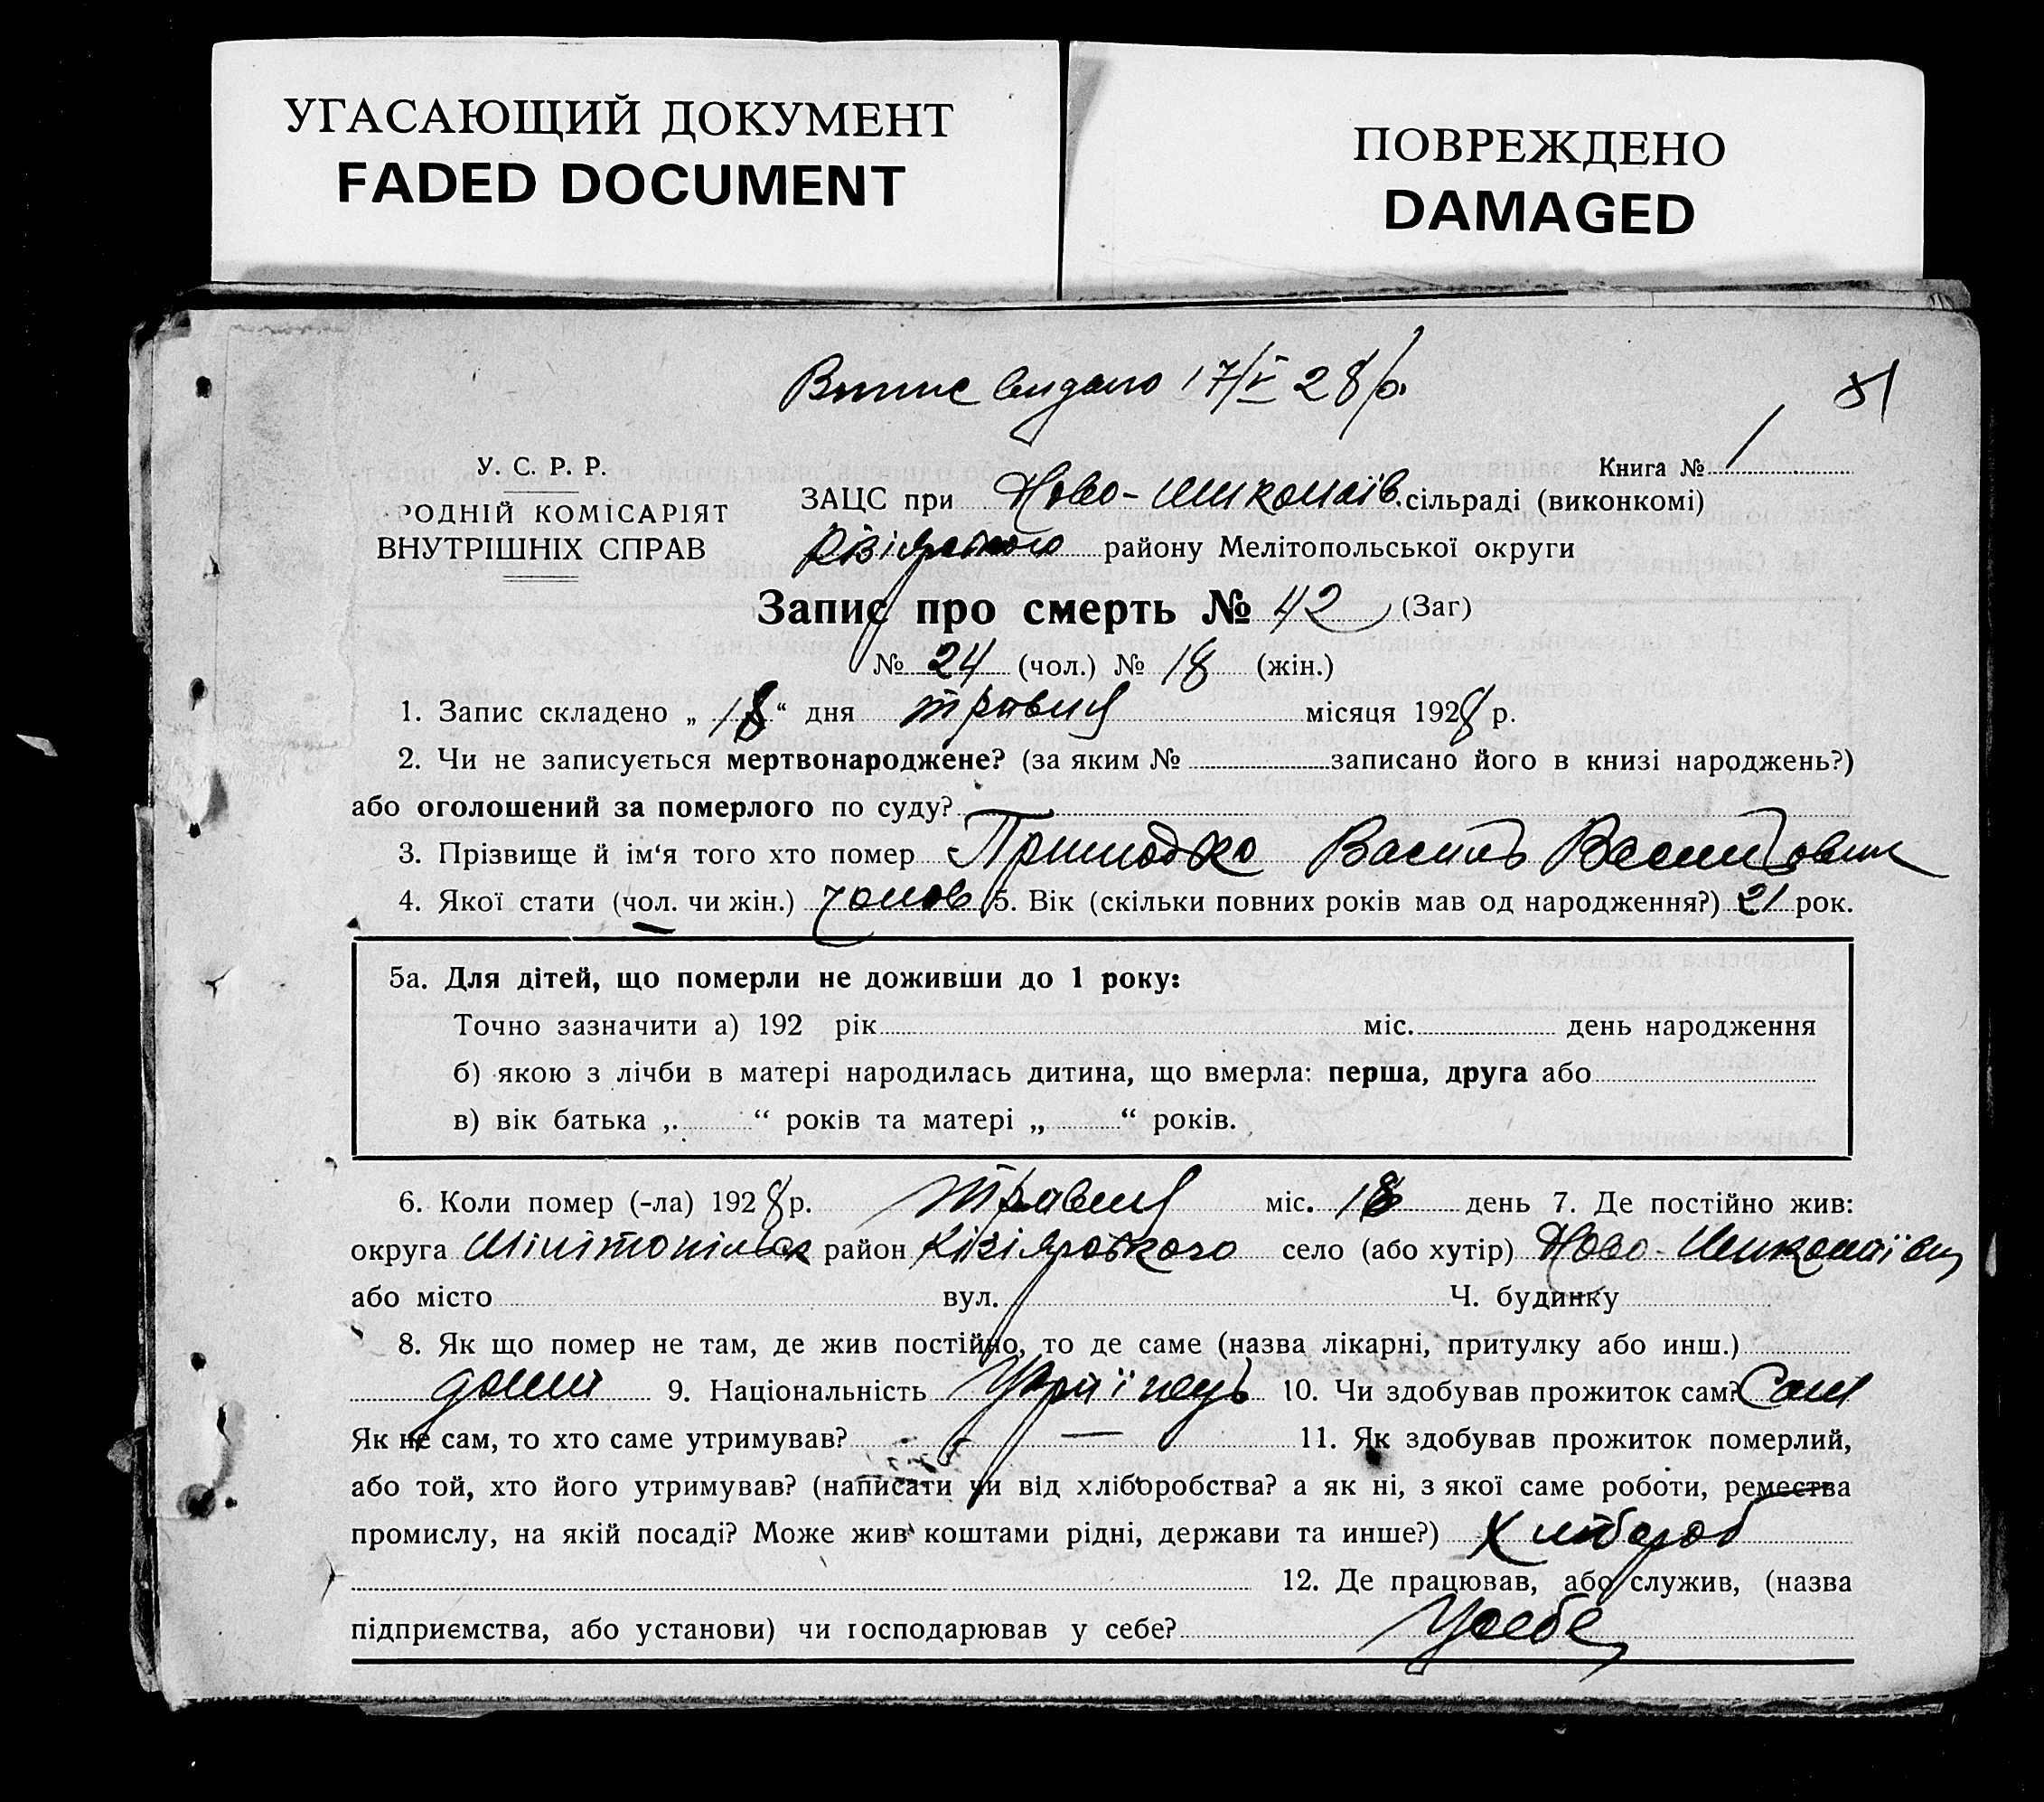 УГАСАЮЩИЙ ДОКУМЕНТ
FADED DOCUMENT
ПОВРЕЖДЕНО
DAMAGED
Випис видано 17/V 28 р.
81
У. С. Р. Р.
РОДНІЙ КОМІСАРІЯТ
ВНУТРІШНІХ СПРАВ
Книга № 1
ЗАЦС при Ново-Миколаїв. сільраді (виконкомі)
Кізіярського району Мелітопольської округи
Запис про смерть № 42 (Заг)
№ 24 (чол.) № 18 (жін.)
1. Запис складено „ 18 “ дня травня місяця 1928 р.
2. Чи не записується мертвонароджене? (за яким № записано його в книзі народжень?)
або оголошений за померлого по суду?
3. Прізвище й ім‘я того хто помер Приходько Василь Васильович
4. Якої стати (чол. чи жін.) чолов 5. Вік (скільки повних років мав од народження?) 21 рок.
5а. Для дітей, що померли не доживши до 1 року:
Точно зазначити а) 192 рік міс. день народження
б) якою з лічби в матері народилась дитина, що вмерла: перша, друга або
в) вік батька „ “ років та матері „ “ років.
6. Коли помер (-ла) 1928 р. травня міс. день 7. Де постійно жив:
округа район Кізіярського село (або хутір) Ново-Миколаївц
або місто вул. Ч. будинку
8. Як що помер не там, де жив постійно, то де саме (назва лікарні, притулку або инш.)
дома 9. Національність Україпець 10. Чи здобував прожиток сам? Сам
Як не сам, то хто саме утримував? — 11. Як здобував прожиток померлий,
або той, хто його утримував? (написати чи від хліборобства? а як ні, з якої саме роботи, ремества
промислу, на якій посаді? Може жив коштами рідні, держави та инше?) Хлібороб
12. Де працював, або служив, (назва
підприємства, або установи) чи господарював у себе? Усебе